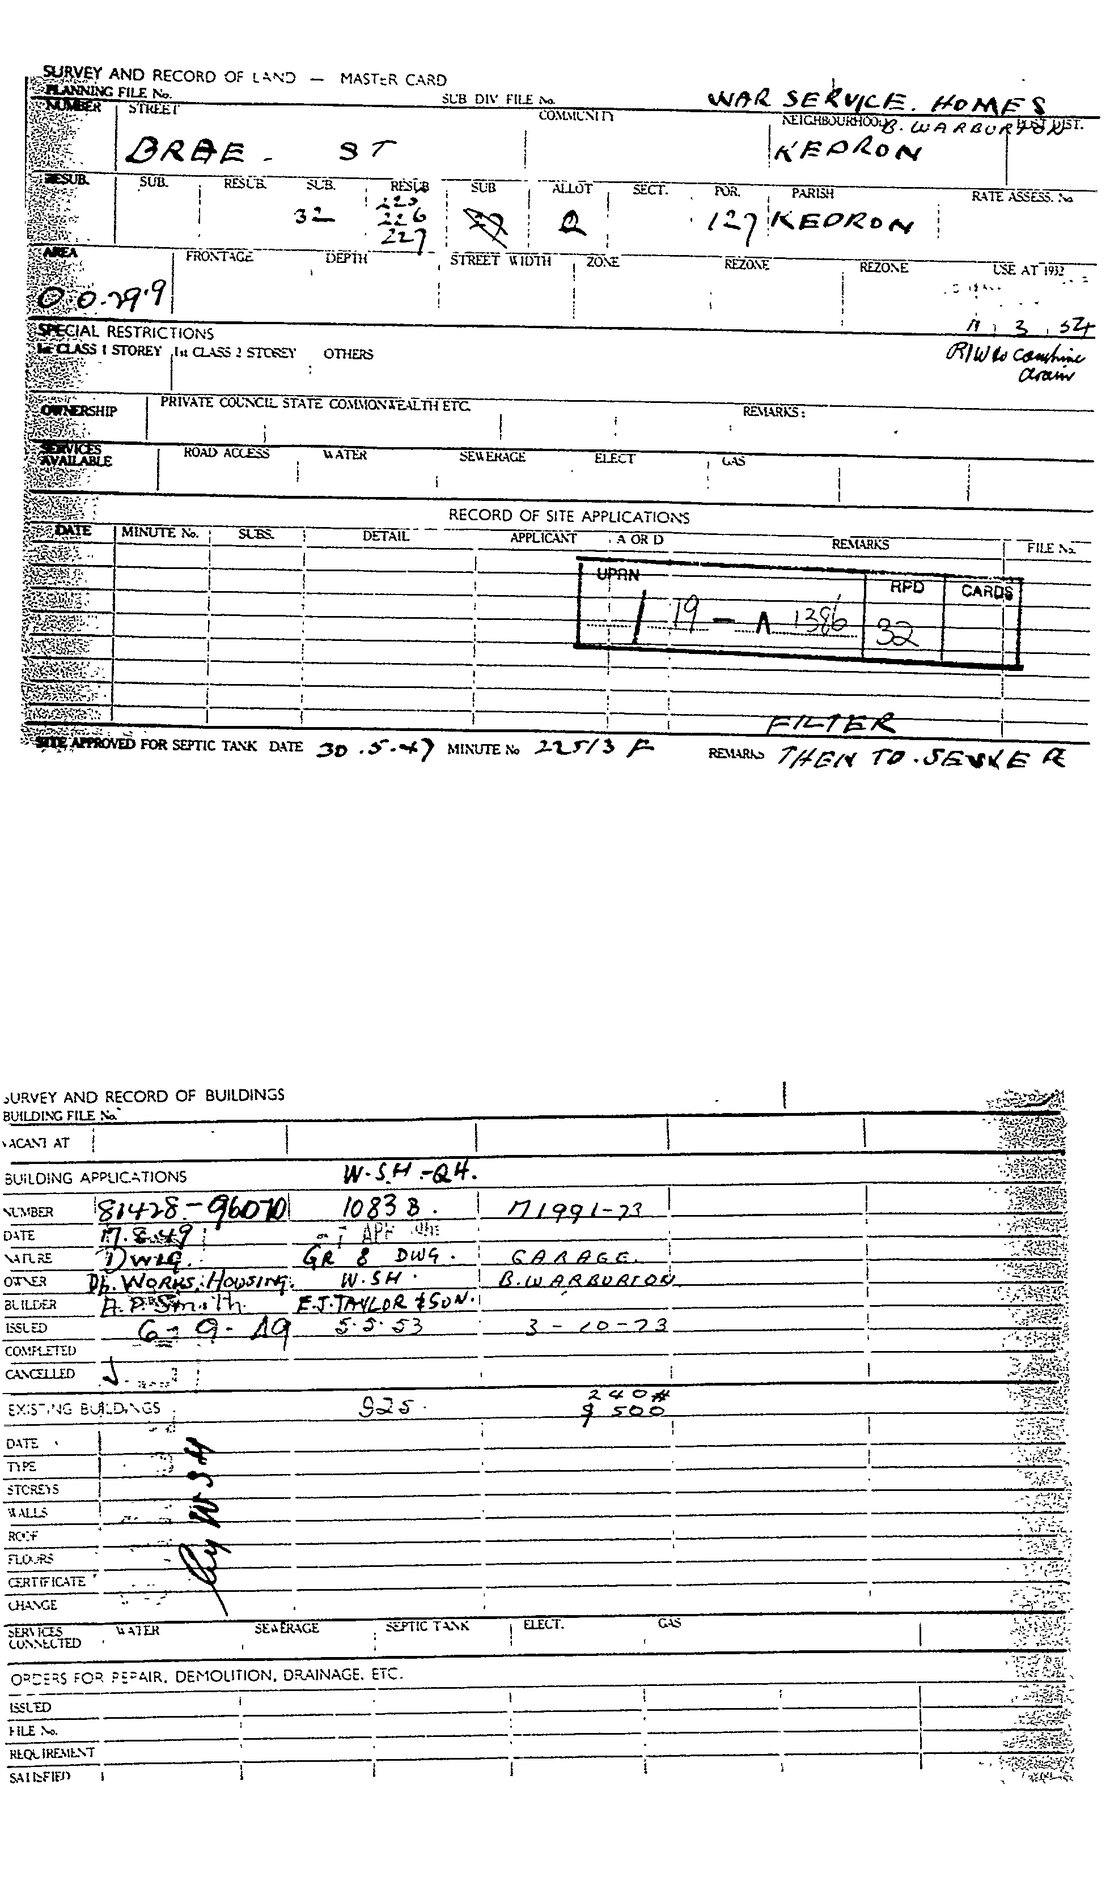 SURVEY AND RECORD OF LAND — MASTER CARD
PLANNING FILE No. SUB DIV FILE No. WAR SERVICE. HOMES
NUMBER STREET COMMUNITY NEIGHBOURHOOD B. WARBURTON DIST.
BRAE - ST KEDRON
RESUB. SUB. RESUB. SUB. RESUB SUB ALLOT SECT. POR. PARISH RATE ASSESS. No
225
32 226 127 KEDRON
227
AREA FRONTAGE DEPTH STREET WIDTH ZONE REZONE REZONE USE AT 1932
0.0.29.9
SPECIAL RESTRICTIONS 11.3.54
1st CLASS 1 STOREY 1st CLASS 2 STOREY OTHERS R/W to combine
drain
OWNERSHIP PRIVATE COUNCIL STATE COMMONWEALTH ETC. REMARKS:
SERVICES AVAILABLE ROAD ACCESS WATER SEWERAGE ELECT GAS
RECORD OF SITE APPLICATIONS
DATE MINUTE No. SUBS. DETAIL APPLICANT A OR D REMARKS FILE No.
UPRN RPD CARDS
/ 19 - A 1386 32
FILTER
SITE APPROVED FOR SEPTIC TANK DATE 30.5.47 MINUTE No 22513 F REMARKS THEN TO SEWER
SURVEY AND RECORD OF BUILDINGS
BUILDING FILE No.
VACANT AT
BUILDING APPLICATIONS W.S.H.-Q4.
NUMBER 81428-96070 10838. M1991-73
DATE 17.8.49 APR
NATURE Dwlg. GR 8 DWG. GARAGE.
OWNER Dp. Works. Housing. W.SH. B. WARBURTON
BUILDER A. P. Smith. E.J. TAYLOR & SON.
ISSUED 6-9-49 5.5.53 3-10-73
COMPLETED
CANCELLED
240#
EXISTING BUILDINGS 925. $ 500
DATE
TYPE
STOREYS
WALLS
ROOF
FLOORS
CERTIFICATE
CHANGE
W S H
SERVICES CONNECTED WATER SEWERAGE SEPTIC TANK ELECT. GAS
ORDERS FOR REPAIR, DEMOLITION, DRAINAGE, ETC.
ISSUED
FILE No.
REQUIREMENT
SATISFIED